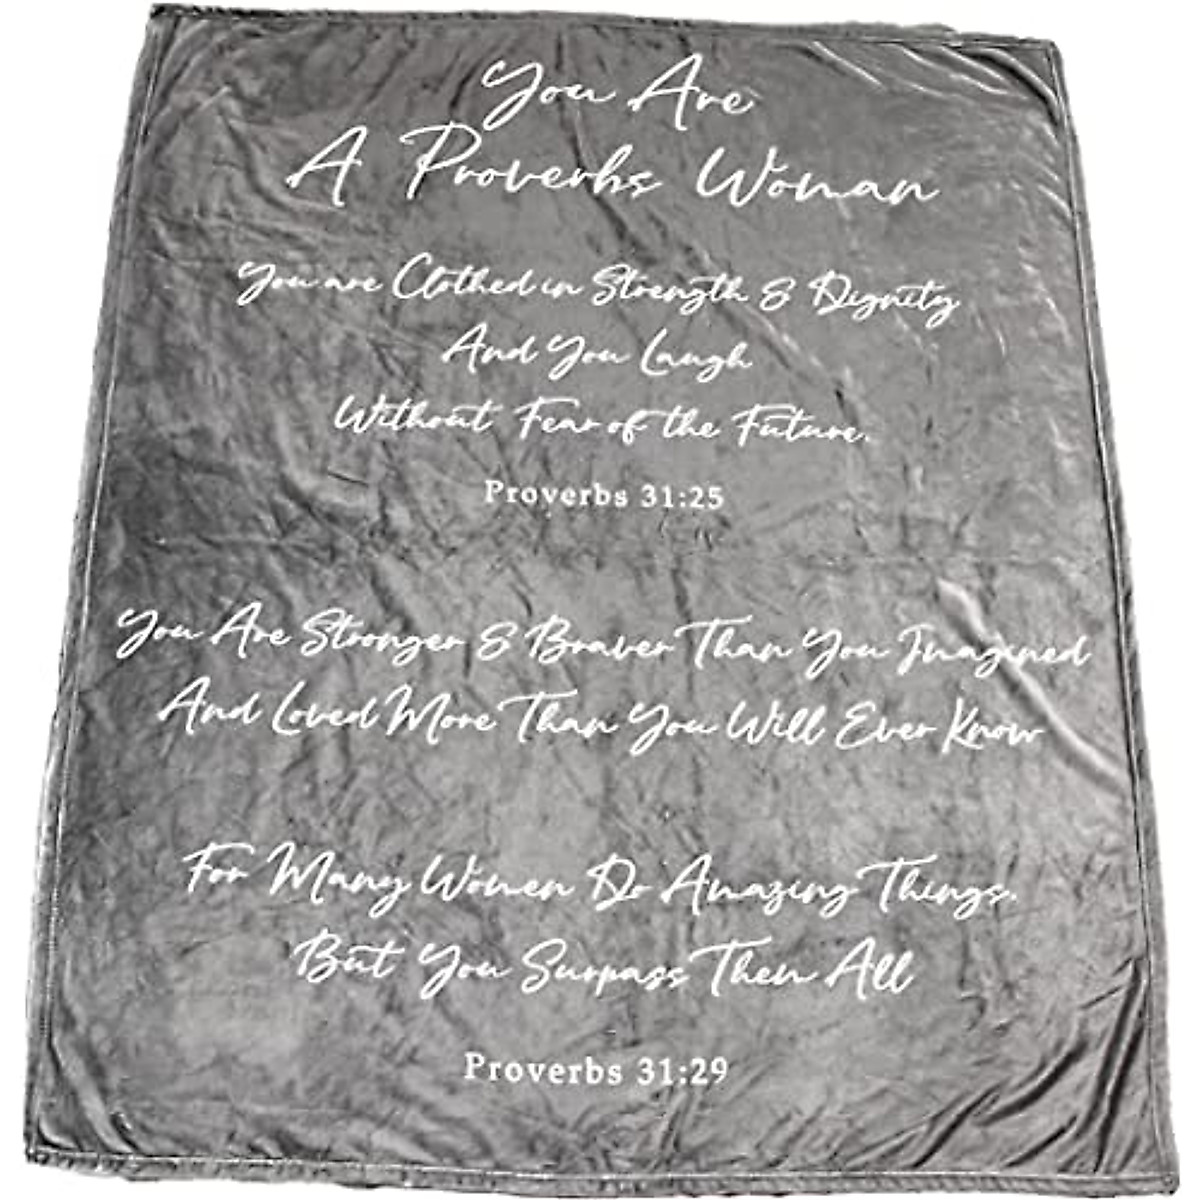 You Are
A Proverbs Woman
You are Clothed in Strength & Dignity
And You Laugh
Without Fear of the Future.
Proverbs 31:25
You Are Stronger & Braver Than You Imagined
And Loved More Than You Will Ever Know
For Many Women Do Amazing Things.
But You Surpass Them All
Proverbs 31:29